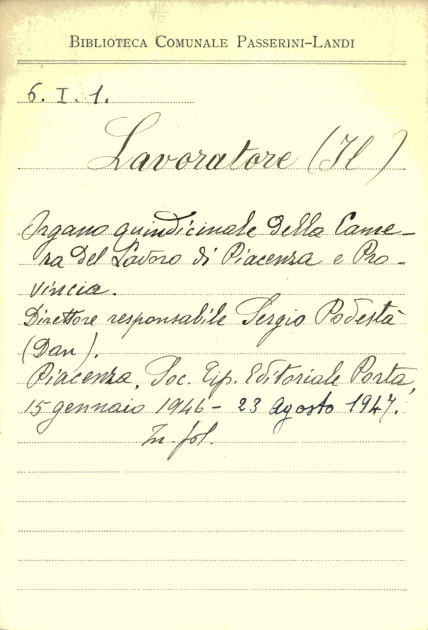 BIBLIOTECA COMUNALE PASSERINI-LANDI
6. I. 1.
Lavoratore (Il)
Organo quindicinale della Came-
ra del Lavoro di Piacenza e Pro-
vincia.
Direttore responsabile Sergio Podestà
(Dan).
Piacenza, Soc. Tip. Editoriale Porta,
15 gennaio 1946 - 23 Agosto 1947.
In-fol.